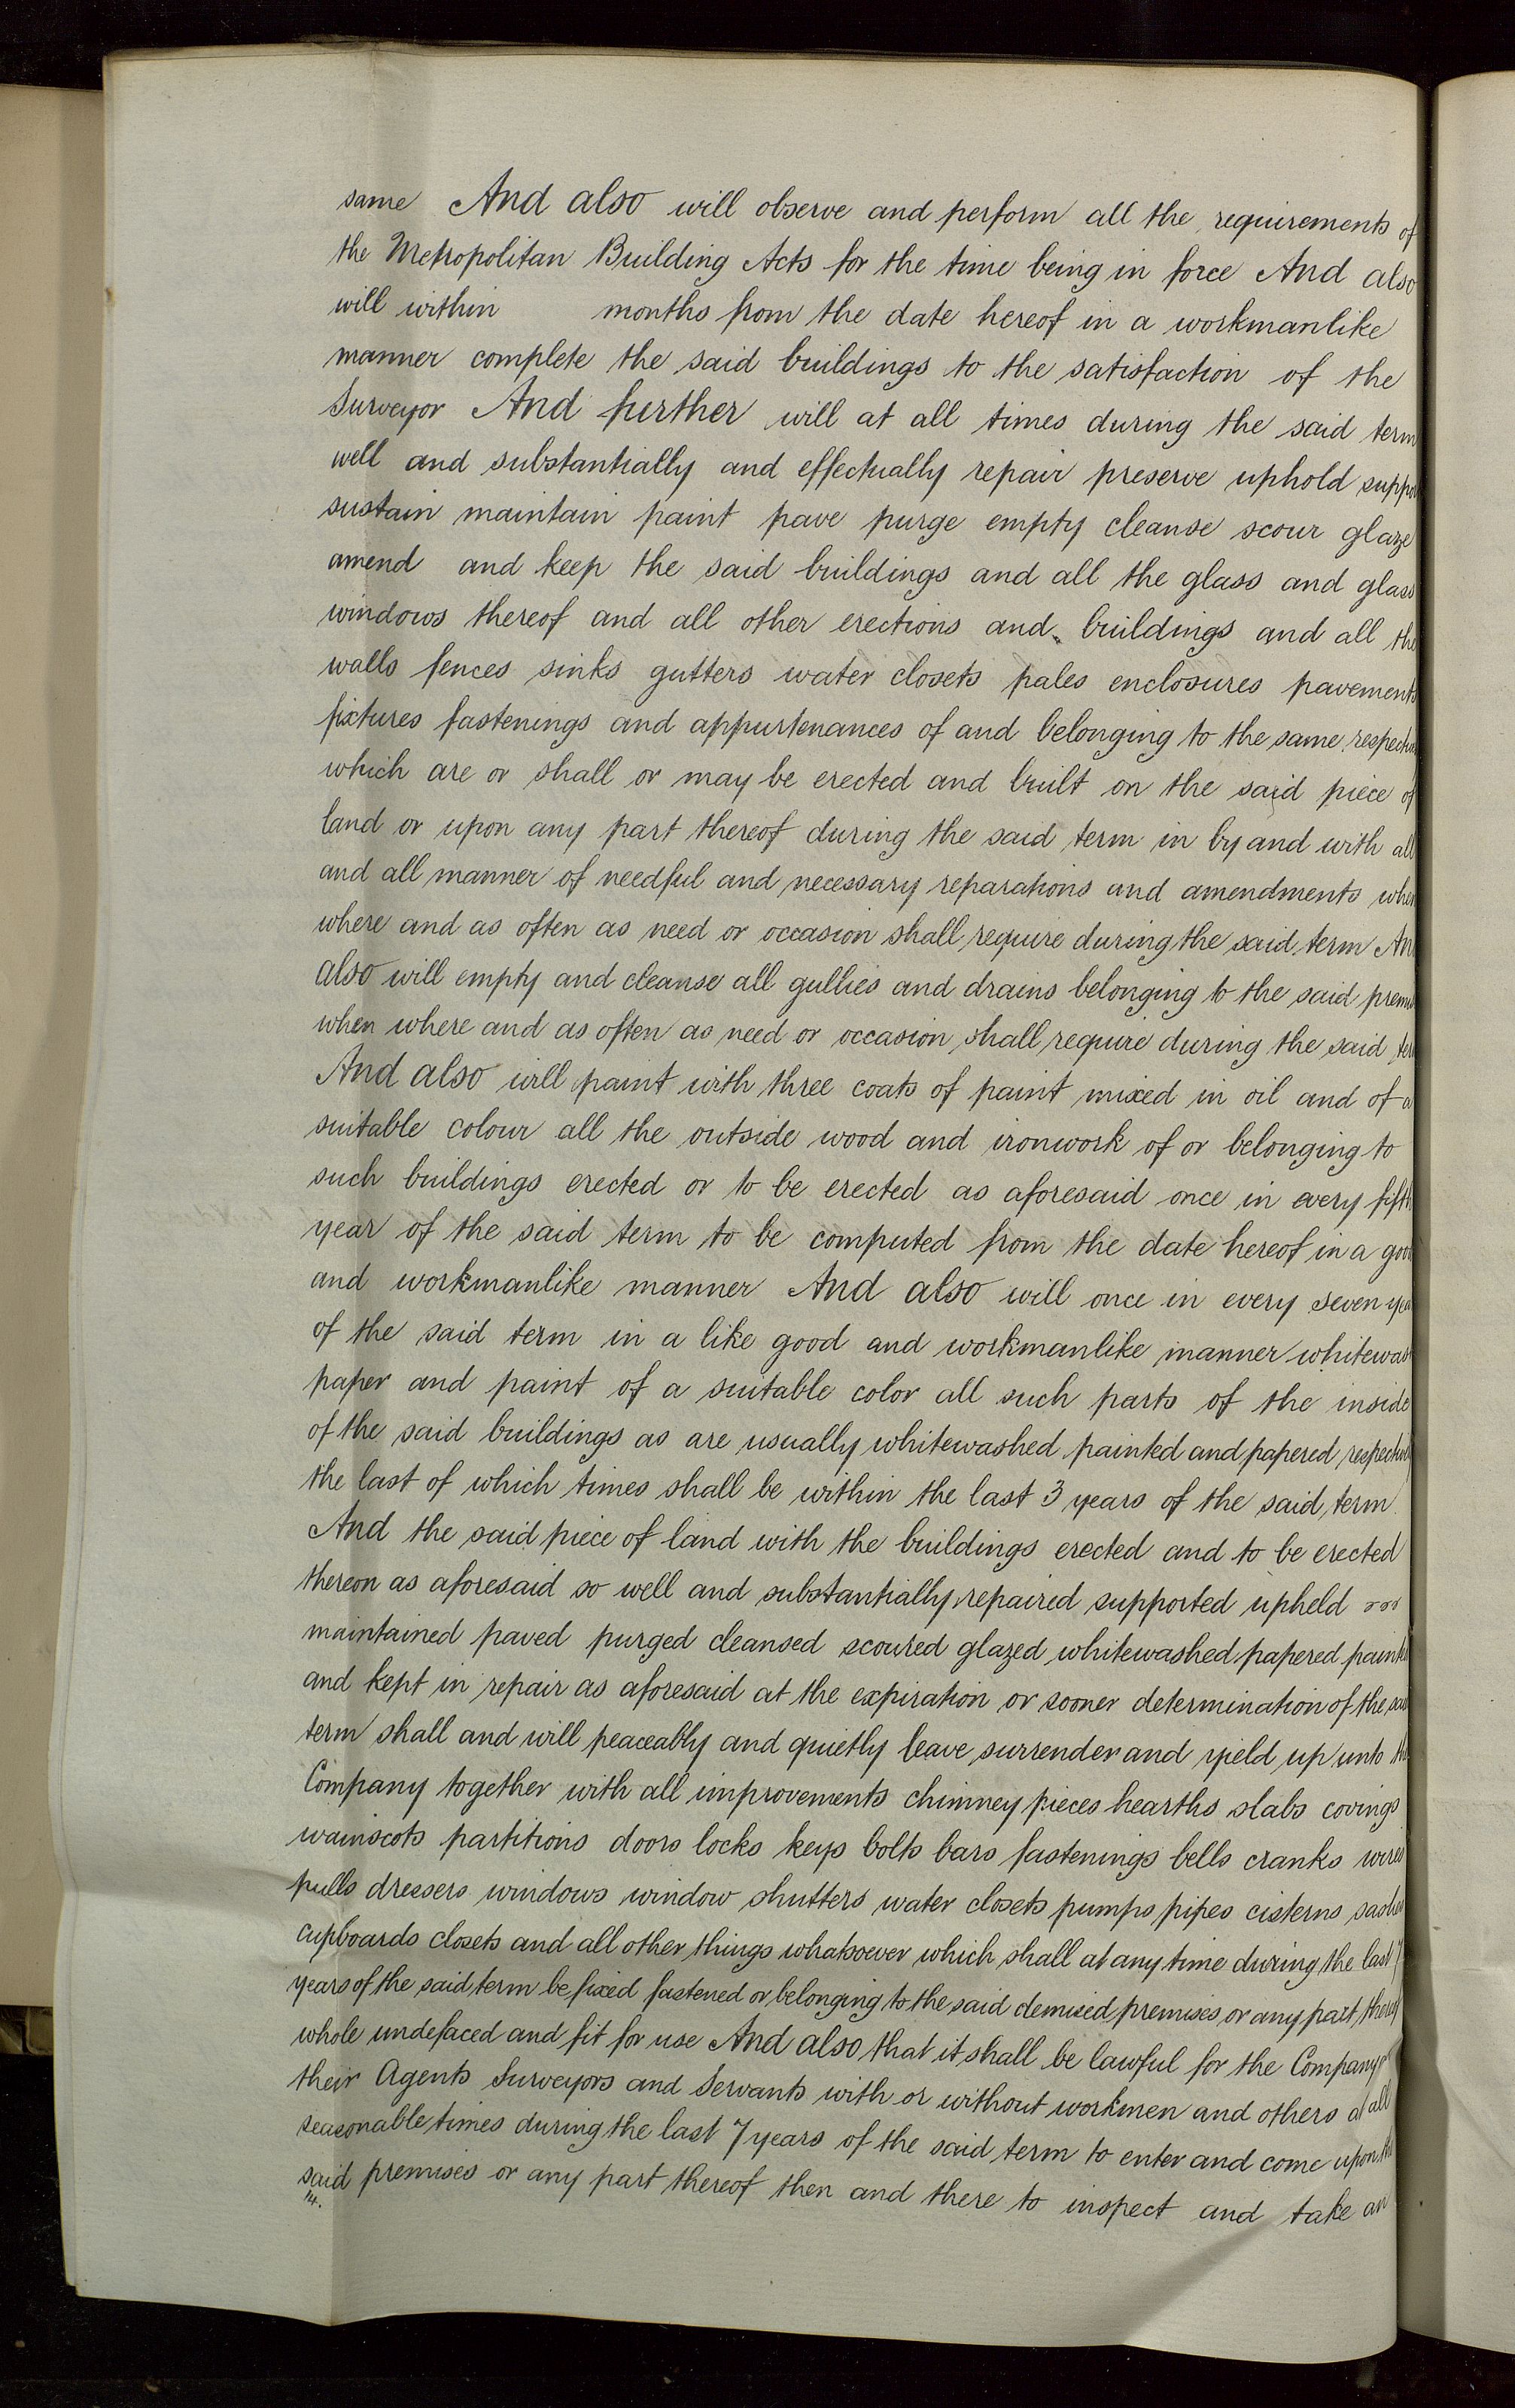 same And also will observe and perform all the requirements of
the Metropolitan Building Acts for the time being in force And also
will within months from the date hereof in a workmanlike
manner complete the said buildings to the satisfaction of the
Surveyor And further will at all times during the said term
well and substantially and effectually repair preserve uphold suppo
sustain maintain paint pave purge empty cleanse scour glaze
amend and keep the said buildings and all the glass and glass
windows thereof and all other erections and buildings and all the
walls fences sinks gutters water closets pales enclosures pavements
fixtures fastenings and appurtenances of and belonging to the same respectiv
which are or shall or may be erected and built on the said piece of
land or upon any part thereof during the said term in by and with all
and all manner of needful and necessary reparations and amendments when
where and as often as need or occasion shall require during the said term An
also will empty and cleanse all gullies and drains belonging to the said premis
when where and as often as need or occasion shall require during the said ter
And also will paint with three coats of paint mixed in oil and of a
suitable colour all the outside wood and ironwork of or belonging to
such buildings erected or to be erected as aforesaid once in every fifth
year of the said term to be computed from the date hereof in a goo
and workmanlike manner And also will once in every seven yea
of the said term in a like good and workmanlike manner whitewas
paper and paint of a suitable color all such parts of the inside
of the said buildings as are usually whitewashed painted and papered respectivel
the last of which times shall be within the last 3 years of the said term
And the said piece of land with the buildings erected and to be erected
thereon as aforesaid so well and substantially repaired supported upheld
maintained paved purged cleansed scoured glazed whitewashed papered painte
and kept in repair as aforesaid at the expiration or sooner determination of the sai
term shall and will peaceably and quietly leave surrender and yield up unto th
Company together with all improvements chimney pieces hearths slabs covings
wainscots partitions doors locks keys bolts bars fastenings bells cranks wires
pulls dressers windows window shutters water closets pumps pipes cisterns sashes
cupboards closets and all other things whatsoever which shall at any time during the last 7
years of the said term be fixed fastened or belonging to the said demised premises or any part thereof
whole undefaced and fit for use And also that it shall be lawful for the Company
their Agents Surveyors and Servants with or without workmen and others at all
seasonable times during the last 7 years of the said term to enter and come upon the
said premises or any part thereof then and there to inspect and take an
14.